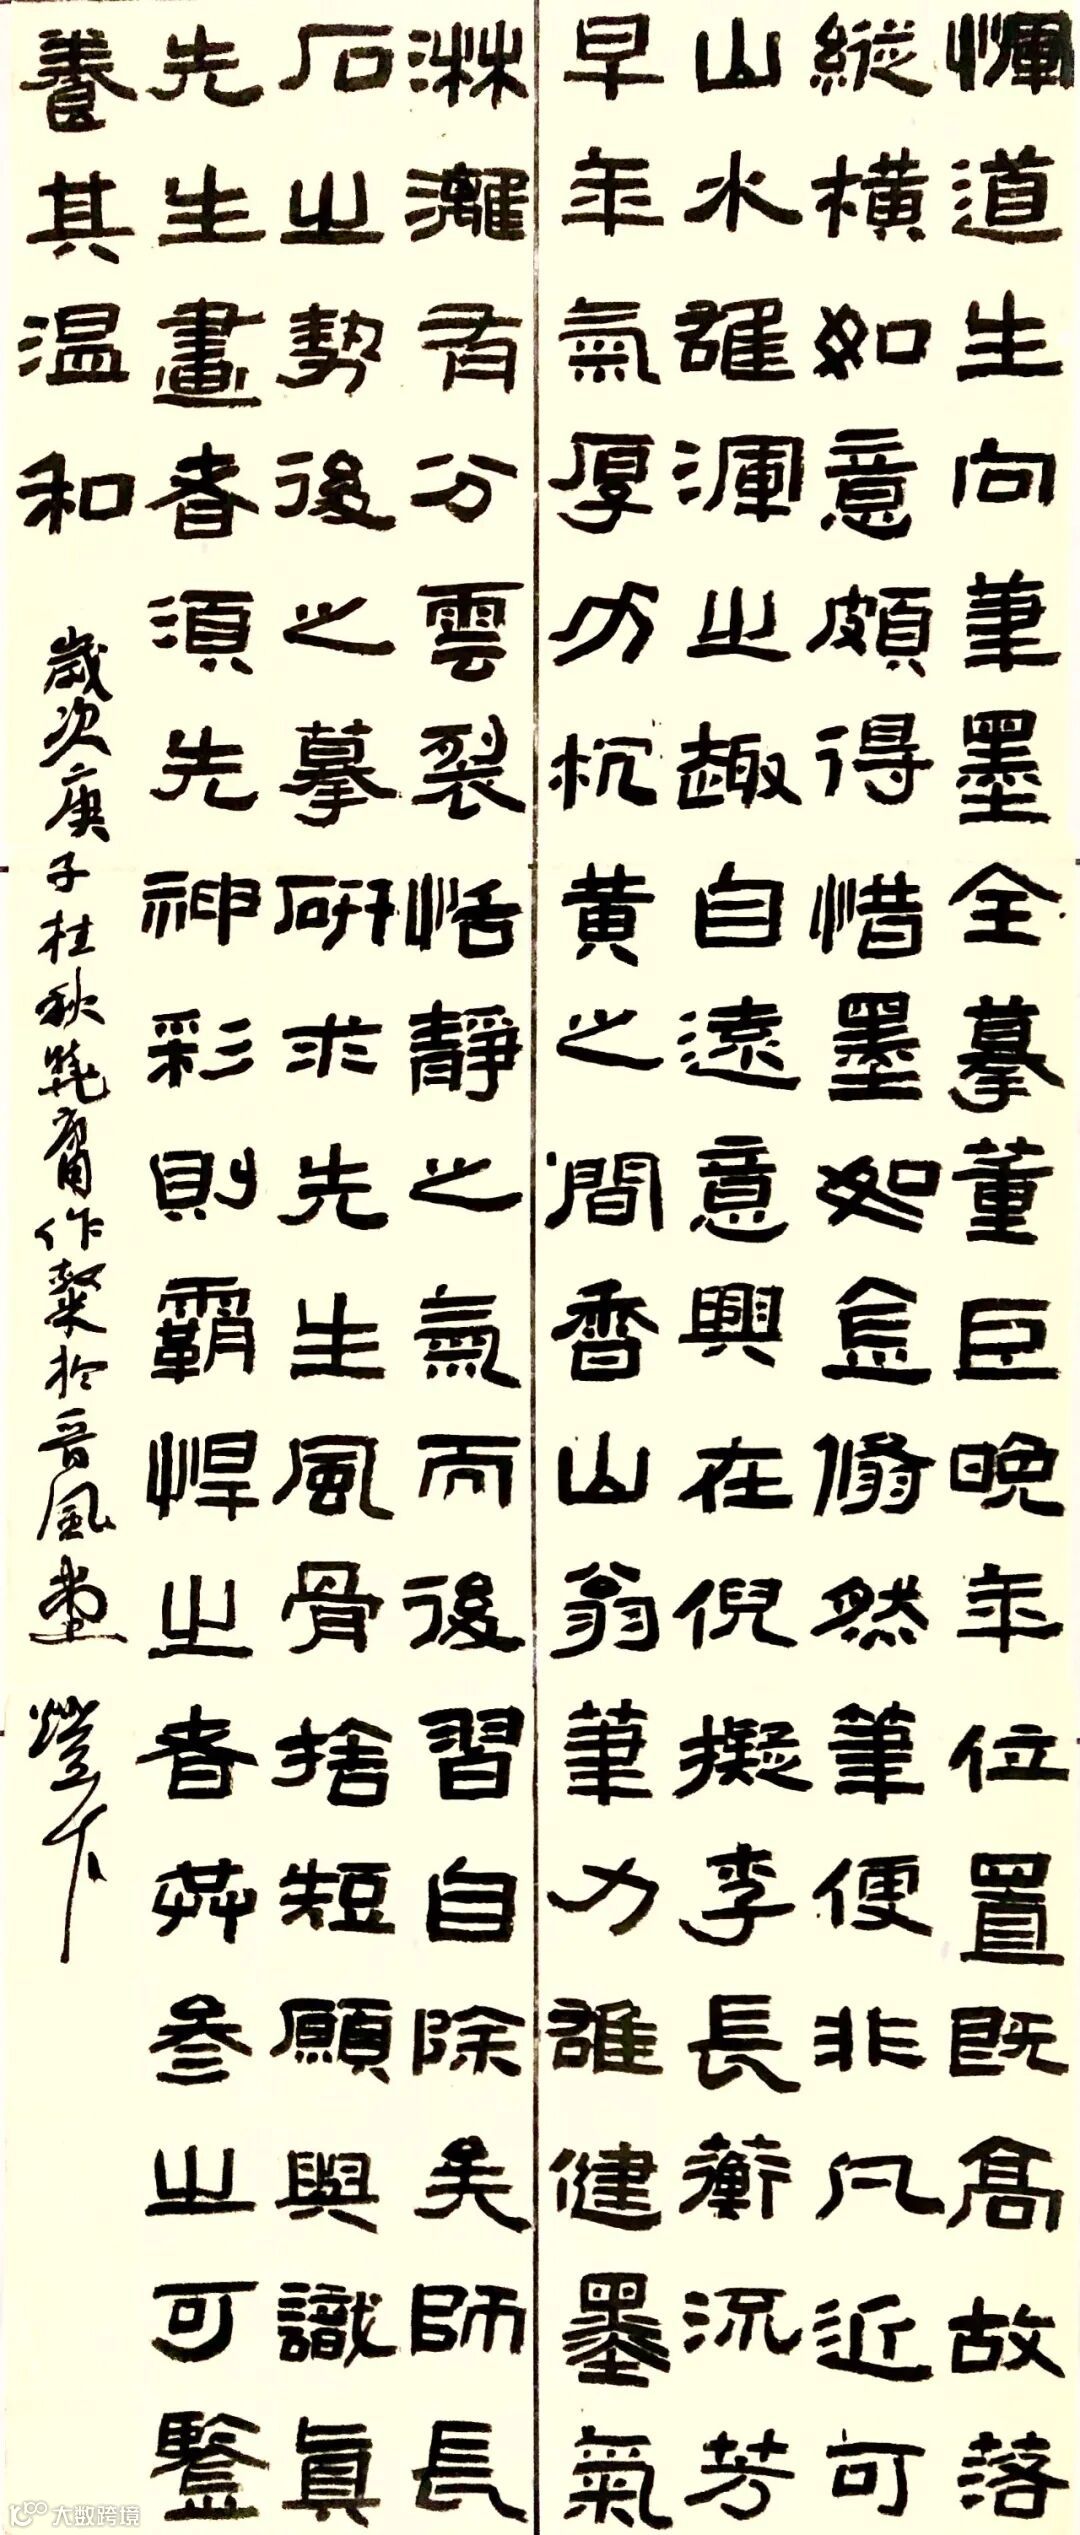 惲道生向筆墨全摹董巨晚年位置既高故落
縱橫如意頗得惜墨如金翛然筆便非凡近可
山水雄渾之趣自遠意興在倪擬李長蘅流芳
早年氣厚方杭黄之間香山翁筆力雄健墨氣
淋灕有分雲裂恬靜之氣而後習自除矣師長
石之勢後之摹研求先生風骨捨短願與識真
先生畫者須先神彩則霸悍之者并參之可
養其温和
歲次庚子桂秋 作於晋風堂
燈下
大数跨境